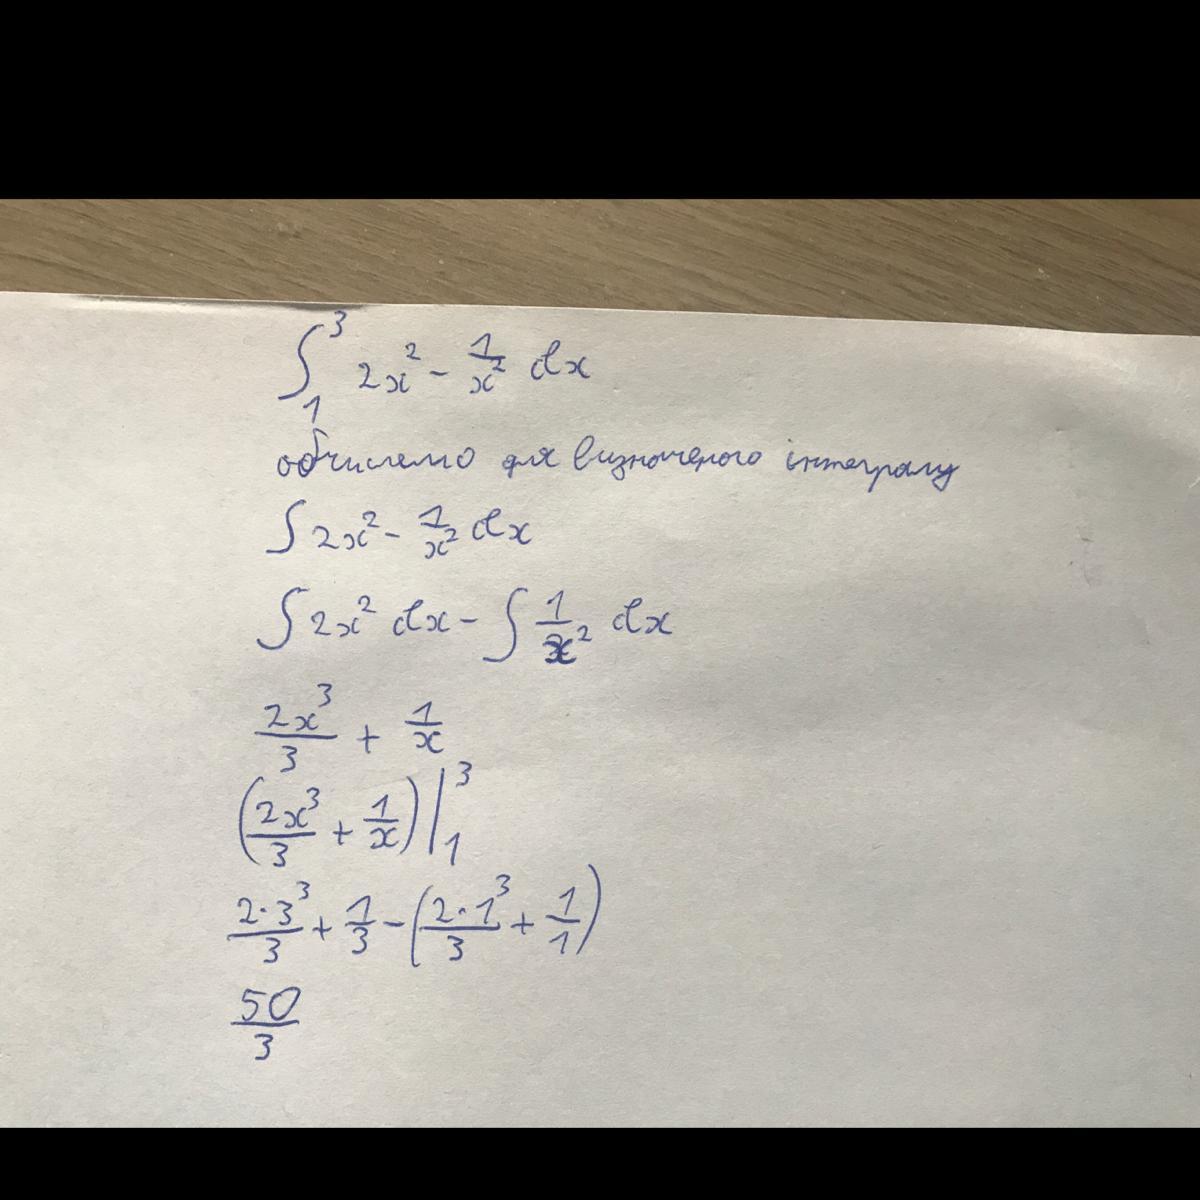 ∫₁³ 2x² - 1/x² dx
обчислемо для визначеного інтегралу
∫ 2x² - 1/x² dx
∫ 2x² dx - ∫ 1/x² dx
2x³/3 + 1/x
(2x³/3 + 1/x)|₁³
2·3³/3 + 1/3 - (2·1³/3 + 1/1)
50/3